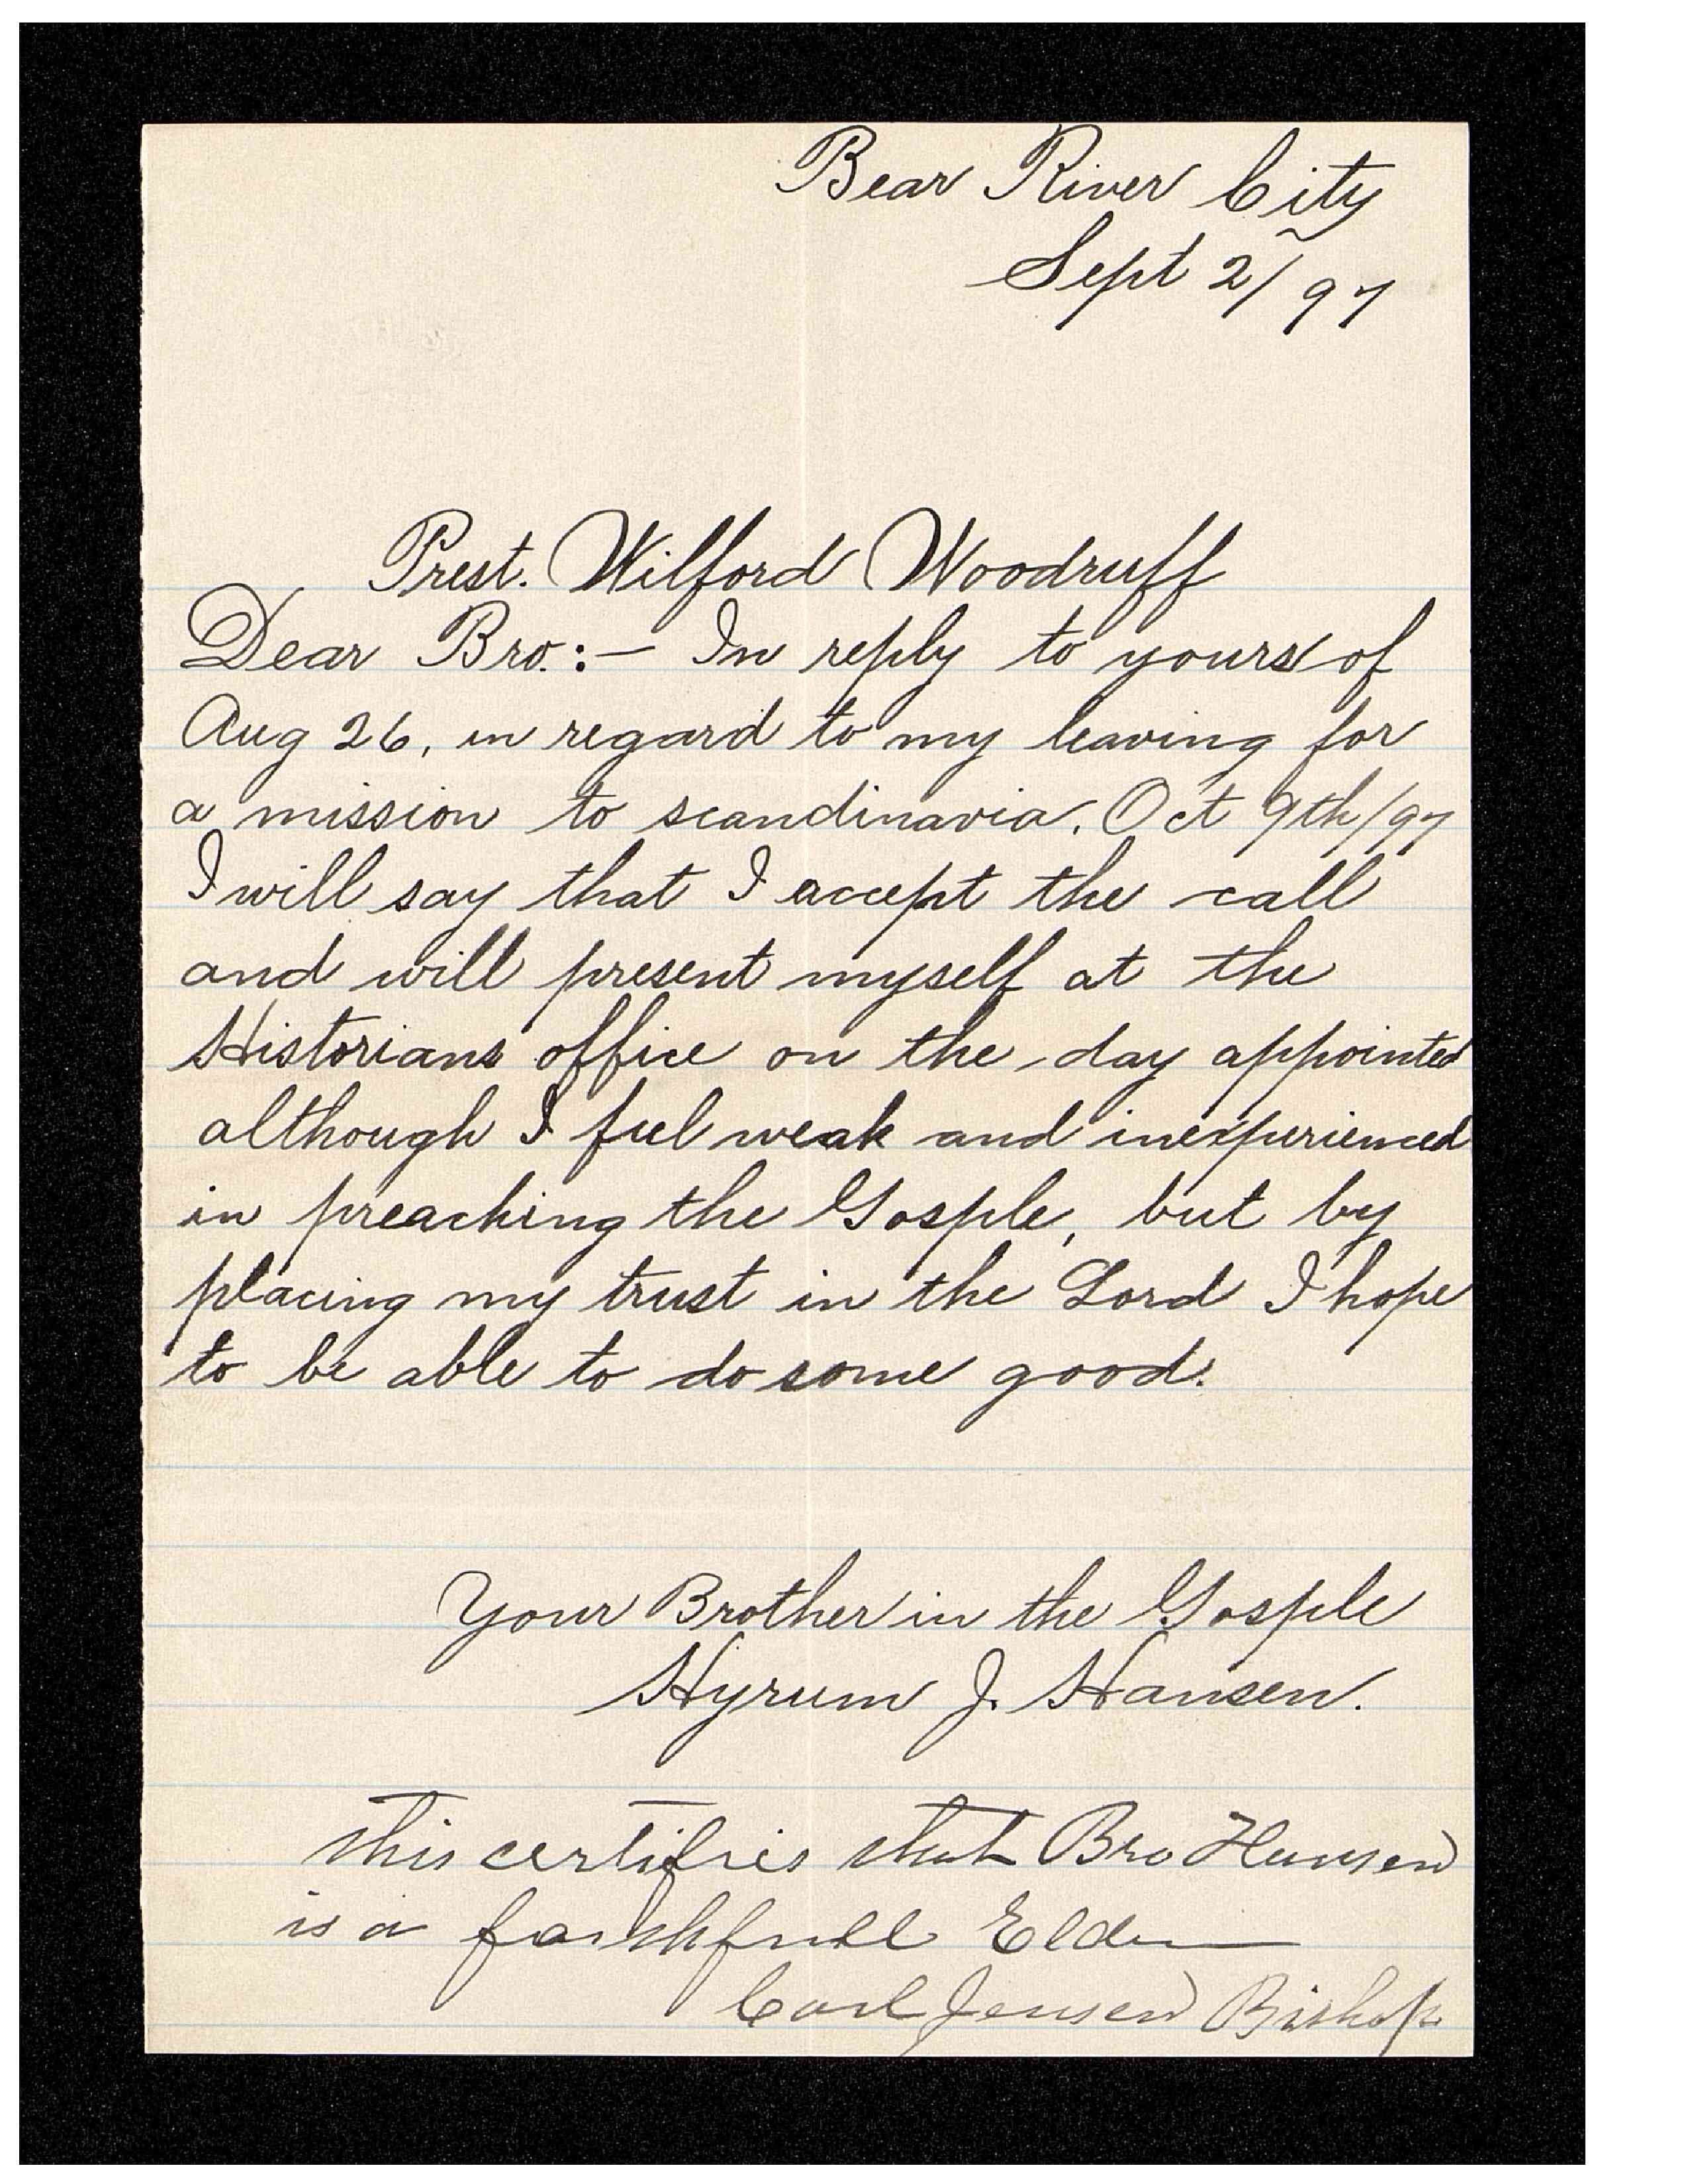 Bear River City
Sept 2/97
Prest. Wilford Woodruff
Dear Bro.:- In reply to yours of
Aug 26, in regard to my leaving for
a mission to scandinavia. Oct 9th/97
I will say that I accept the call
and will present myself at the
Historians office on the day appointed
although I feel weak and inexperienced
in preaching the Gosple, but by
placing my trust in the Lord I hope
to be able to do some good.
Your Brother in the Gosple
Hyrum J. Hansen.
This certifies that Bro Hansen
is a faithfull Elder
Carl Jensen Bishop